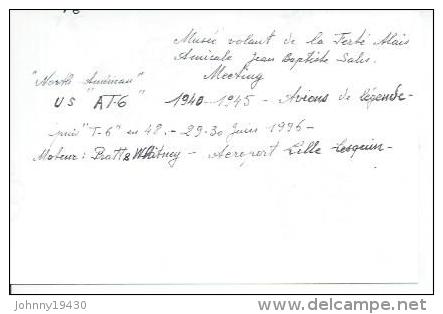 Musée volant de la Ferté Alais
Amicale Jean Baptiste Salis.
"North American" Meeting
US "AT-6" 1940-1945 - Avions de légende -
puis "T-6" en 48. - 29-30 Juin 1996 -
Moteur: Pratt & Whitney - Aéroport Lille-Lesquin -
Johnny19430
www.delcampe.net